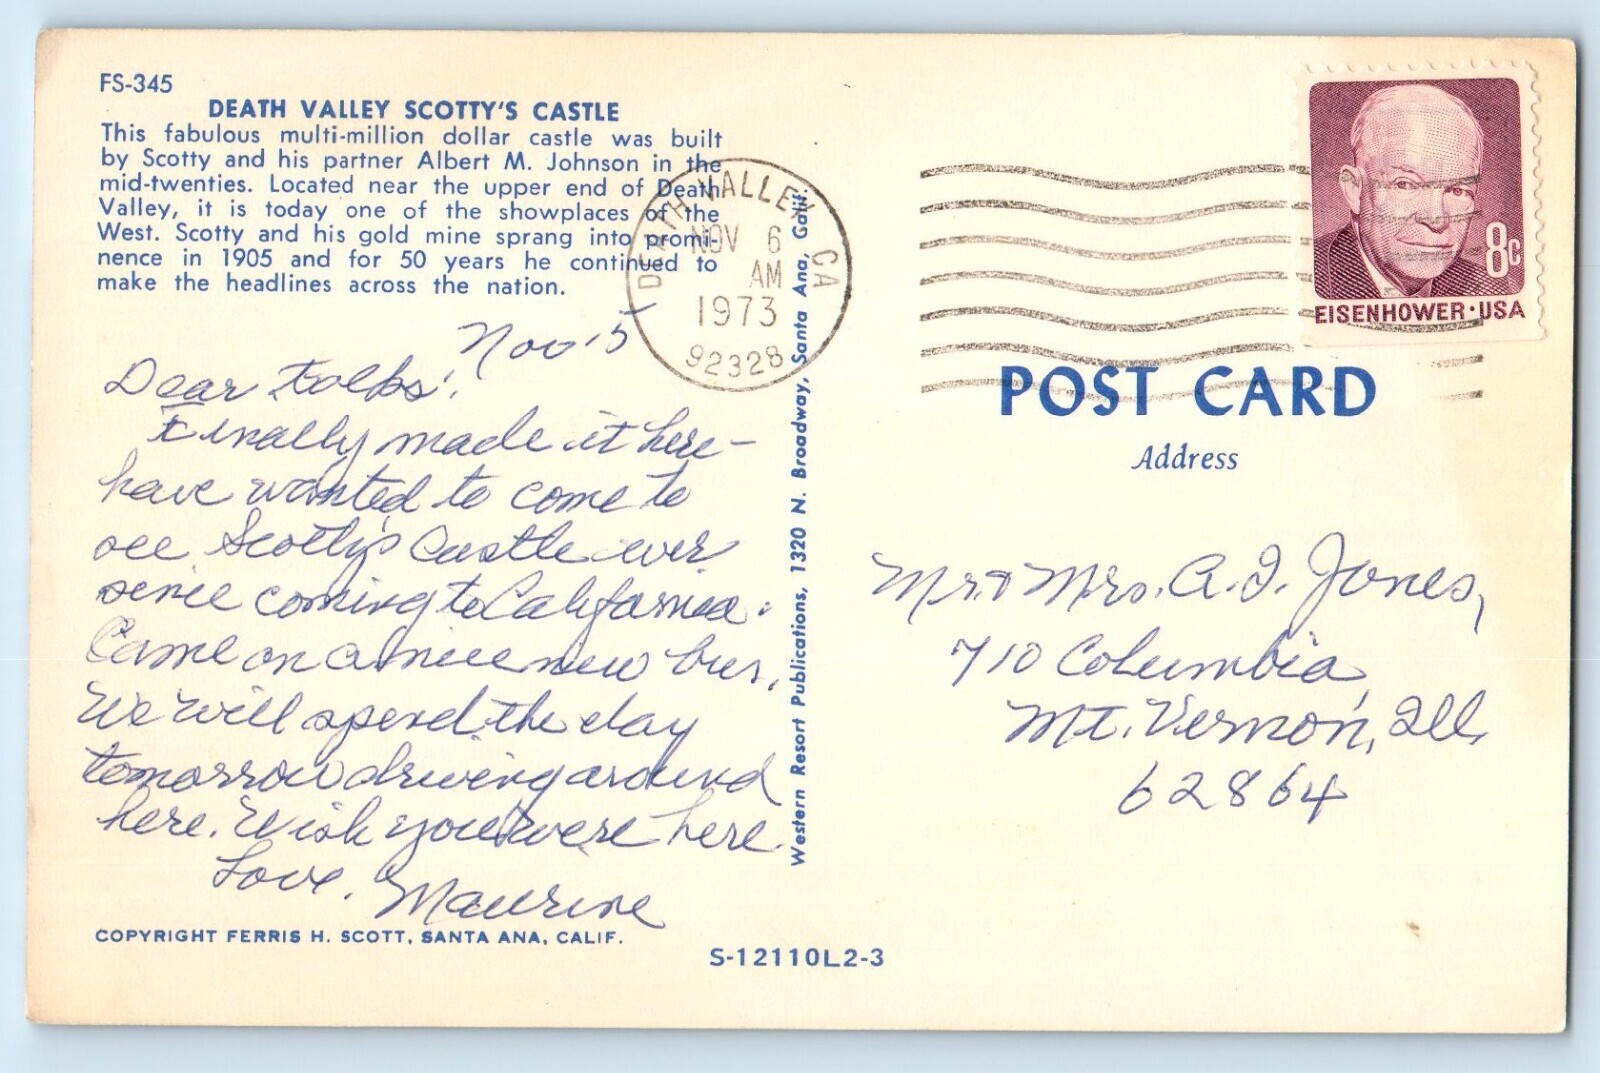 FS-345
DEATH VALLEY SCOTTY'S CASTLE
This fabulous multi-million dollar castle was built
by Scotty and his partner Albert M. Johnson in the
mid-twenties. Located near the upper end of Death
Valley, it is today one of the showplaces of the
West. Scotty and his gold mine sprang into promi-
nence in 1905 and for 50 years he continued to
make the headlines across the nation.
Nov 5
Dear folks:
Finally made it here-
have wanted to come to
see Scotty's Castle ever
since coming to California.
Came on a nice new bus.
We will spend the day
tomorrow driving around
here. Wish you were here
Love, Maurine
COPYRIGHT FERRIS H. SCOTT, SANTA ANA, CALIF.
S-12110L2-3
Western Resort Publications, 1320 N. Broadway, Santa Ana, Calif.
DEATH VALLEY CA
NOV 6
AM
1973
92328
8c
EISENHOWER·USA
POST CARD
Address
Mr. & Mrs. A. I. Jones,
710 Columbia,
Mt. Vernon, Ill.
62864